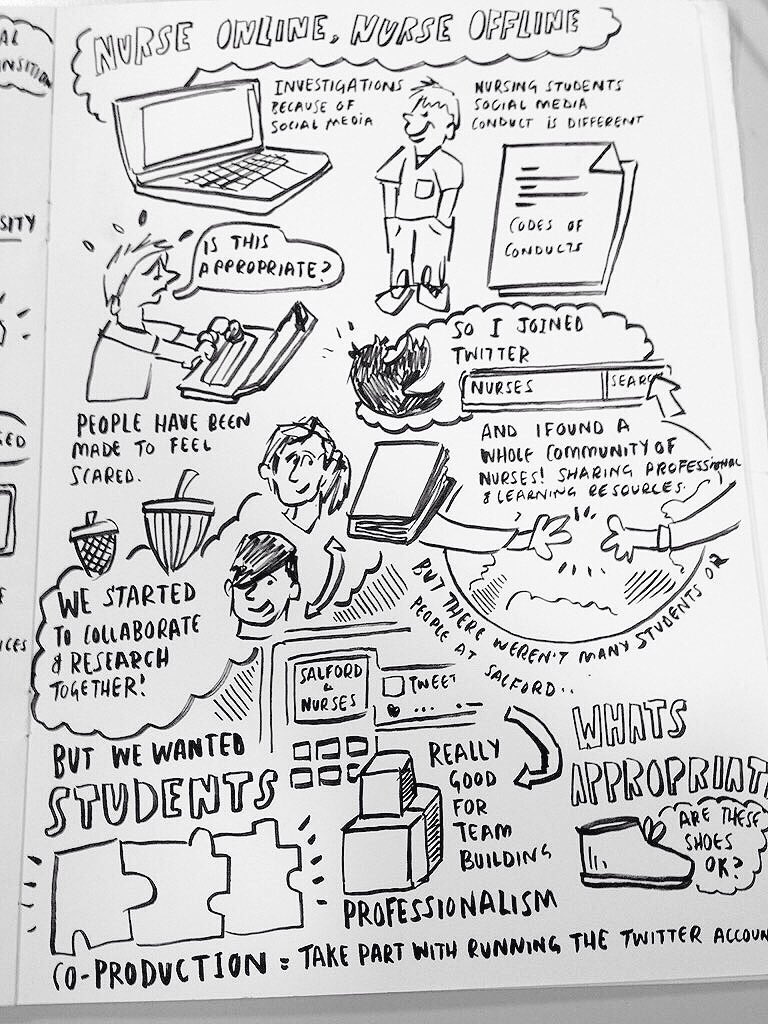 AL
NSITION
SITY
SED
ICES
NURSE ONLINE, NURSE OFFLINE
INVESTIGATIONS
BECAUSE OF
SOCIAL MEDIA
NURSING STUDENTS
SOCIAL MEDIA
CONDUCT IS DIFFERENT
CODES OF
CONDUCTS
IS THIS
APPROPRIATE?
PEOPLE HAVE BEEN
MADE TO FEEL
SCARED.
SO I JOINED
TWITTER
NURSES
SEARCH
AND I FOUND A
WHOLE COMMUNITY OF
NURSES! SHARING PROFESSIONAL
& LEARNING RESOURCES.
BUT THERE WEREN'T MANY STUDENTS OR
PEOPLE AT SALFORD..
WE STARTED
TO COLLABORATE
& RESEARCH
TOGETHER!
SALFORD
&
NURSES
TWEET
BUT WE WANTED
STUDENTS
REALLY
GOOD
FOR
TEAM
BUILDING
PROFESSIONALISM
WHATS
APPROPRIAT
ARE THESE
SHOES
OK?
CO-PRODUCTION = TAKE PART WITH RUNNING THE TWITTER ACCOUN